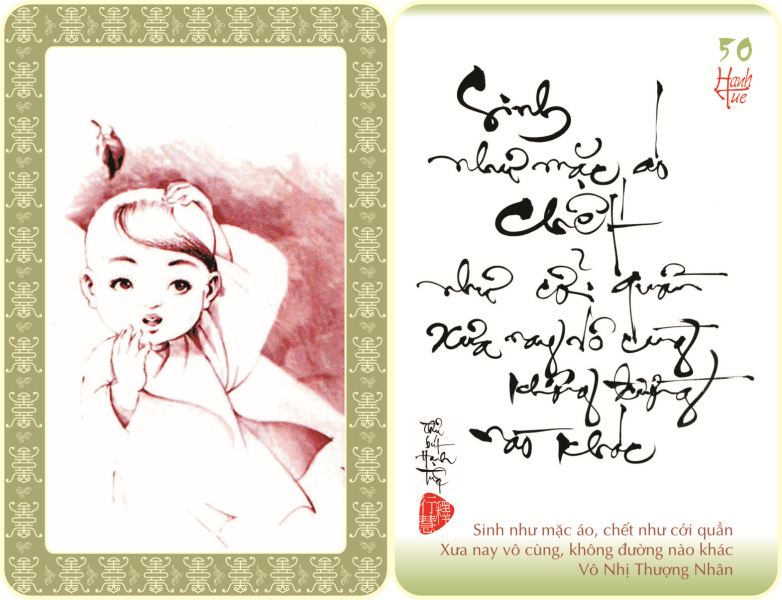 50
Hanh
Tue
Sinh
như mặc áo
Chết
như cởi quần
Xưa nay vô cùng
không đường
nào khác
Thủ
bút
Hạnh
Tuệ
釋
行慧
Sinh như mặc áo, chết như cởi quần
Xưa nay vô cùng, không đường nào khác
Vô Nhị Thượng Nhân